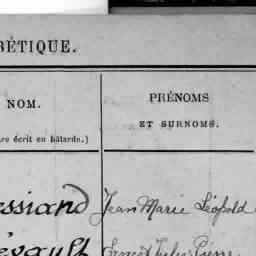 BÉTIQUE.
NOM.
PRÉNOMS
ET SURNOMS.
re écrit en bâtarde.)
ssiand Jean Marie Léopold
évault Ernest Jules Pierre